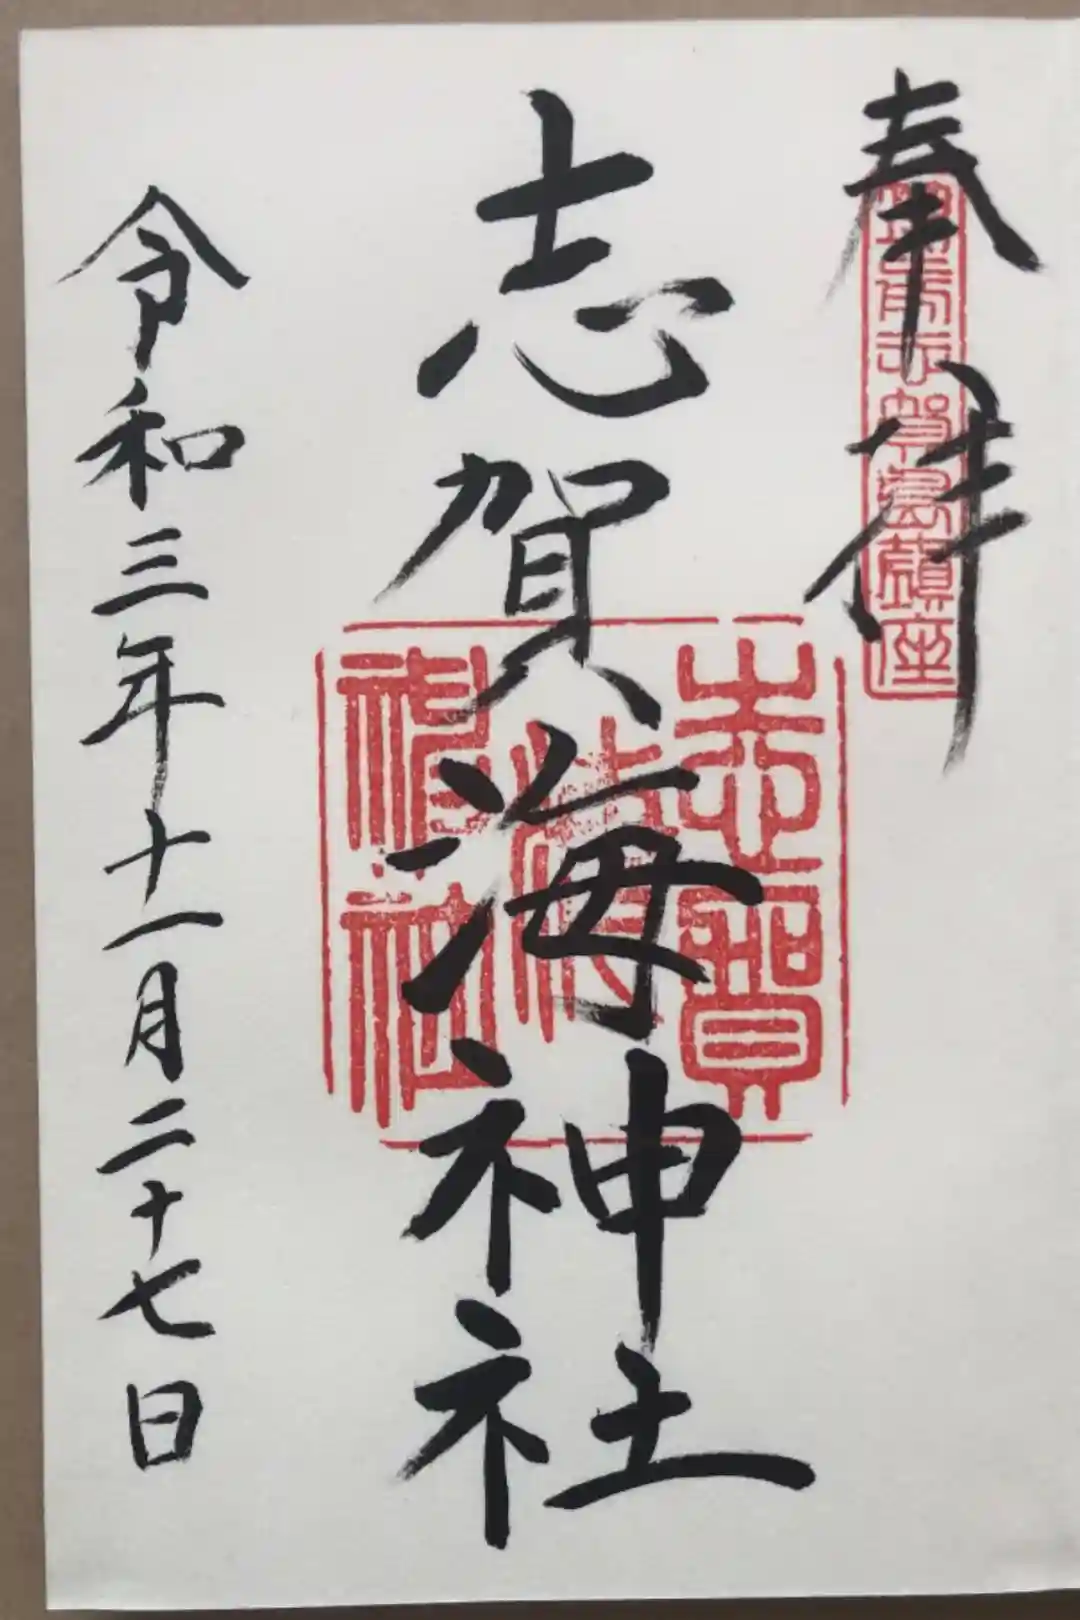 奉拝
筑前志賀島鎮座
志賀海神社
志賀海神社
令和三年十一月二十七日